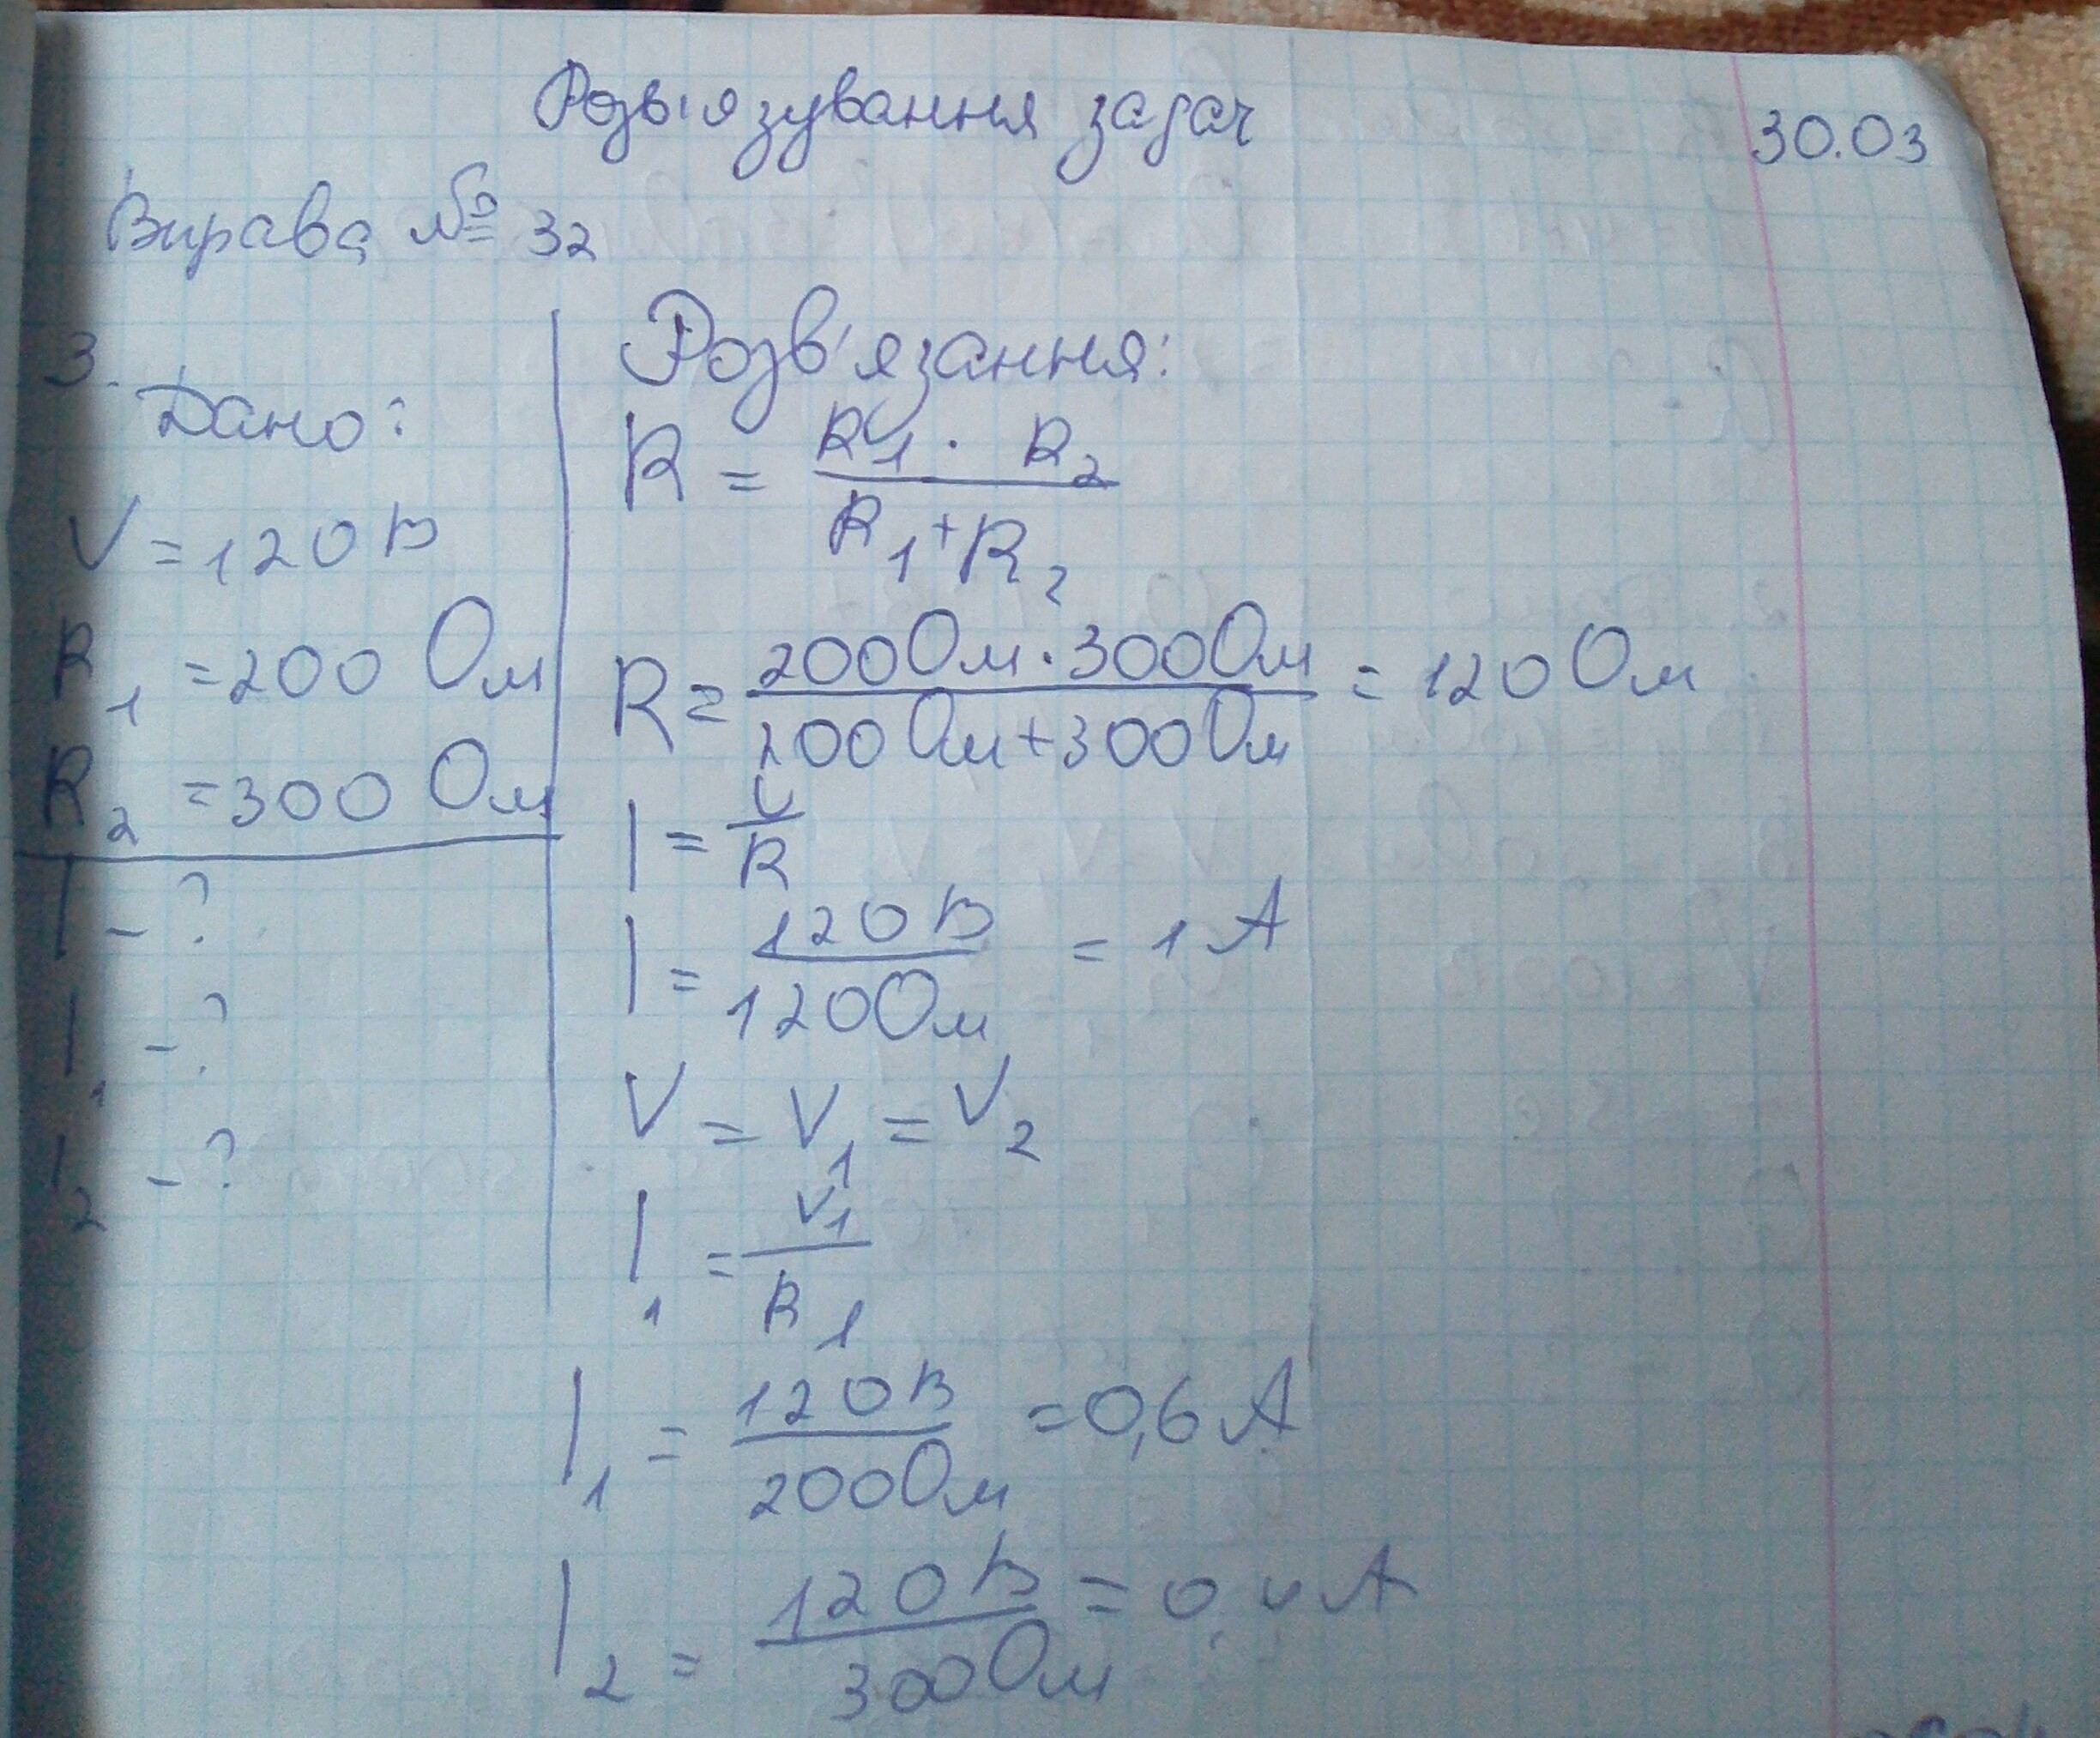 Розв'язування задач
30.03
Вправа № 32
3.
Дано:
V = 120 В
R₁ = 200 Ом
R₂ = 300 Ом
I - ?
I₁ - ?
I₂ - ?
Розв'язання:
R = R₁ · R₂ / R₁ + R₂
R = 200 Ом · 300 Ом / 200 Ом + 300 Ом = 120 Ом
I = U / R
I = 120 В / 120 Ом = 1 А
V = V₁ = V₂
I₁ = V₁ / R₁
I₁ = 120 В / 200 Ом = 0,6 А
I₂ = 120 В / 300 Ом = 0,4 А